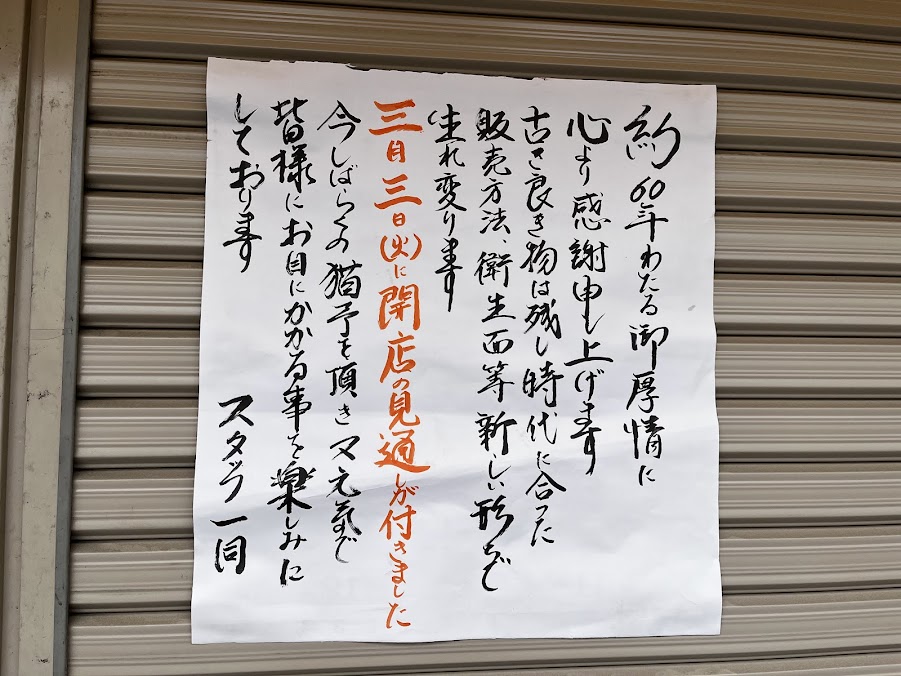 約60年わたる御厚情に
心より感謝申し上げます
古き良き物は残し時代に合った
販売方法、衛生面等新しい形などで
生れ変ります
三月三日(火)に開店の見通しが付きました
今しばらくの猶予を頂き又元気で
皆様にお目にかかる事を楽しみに
しております
スタッフ一同